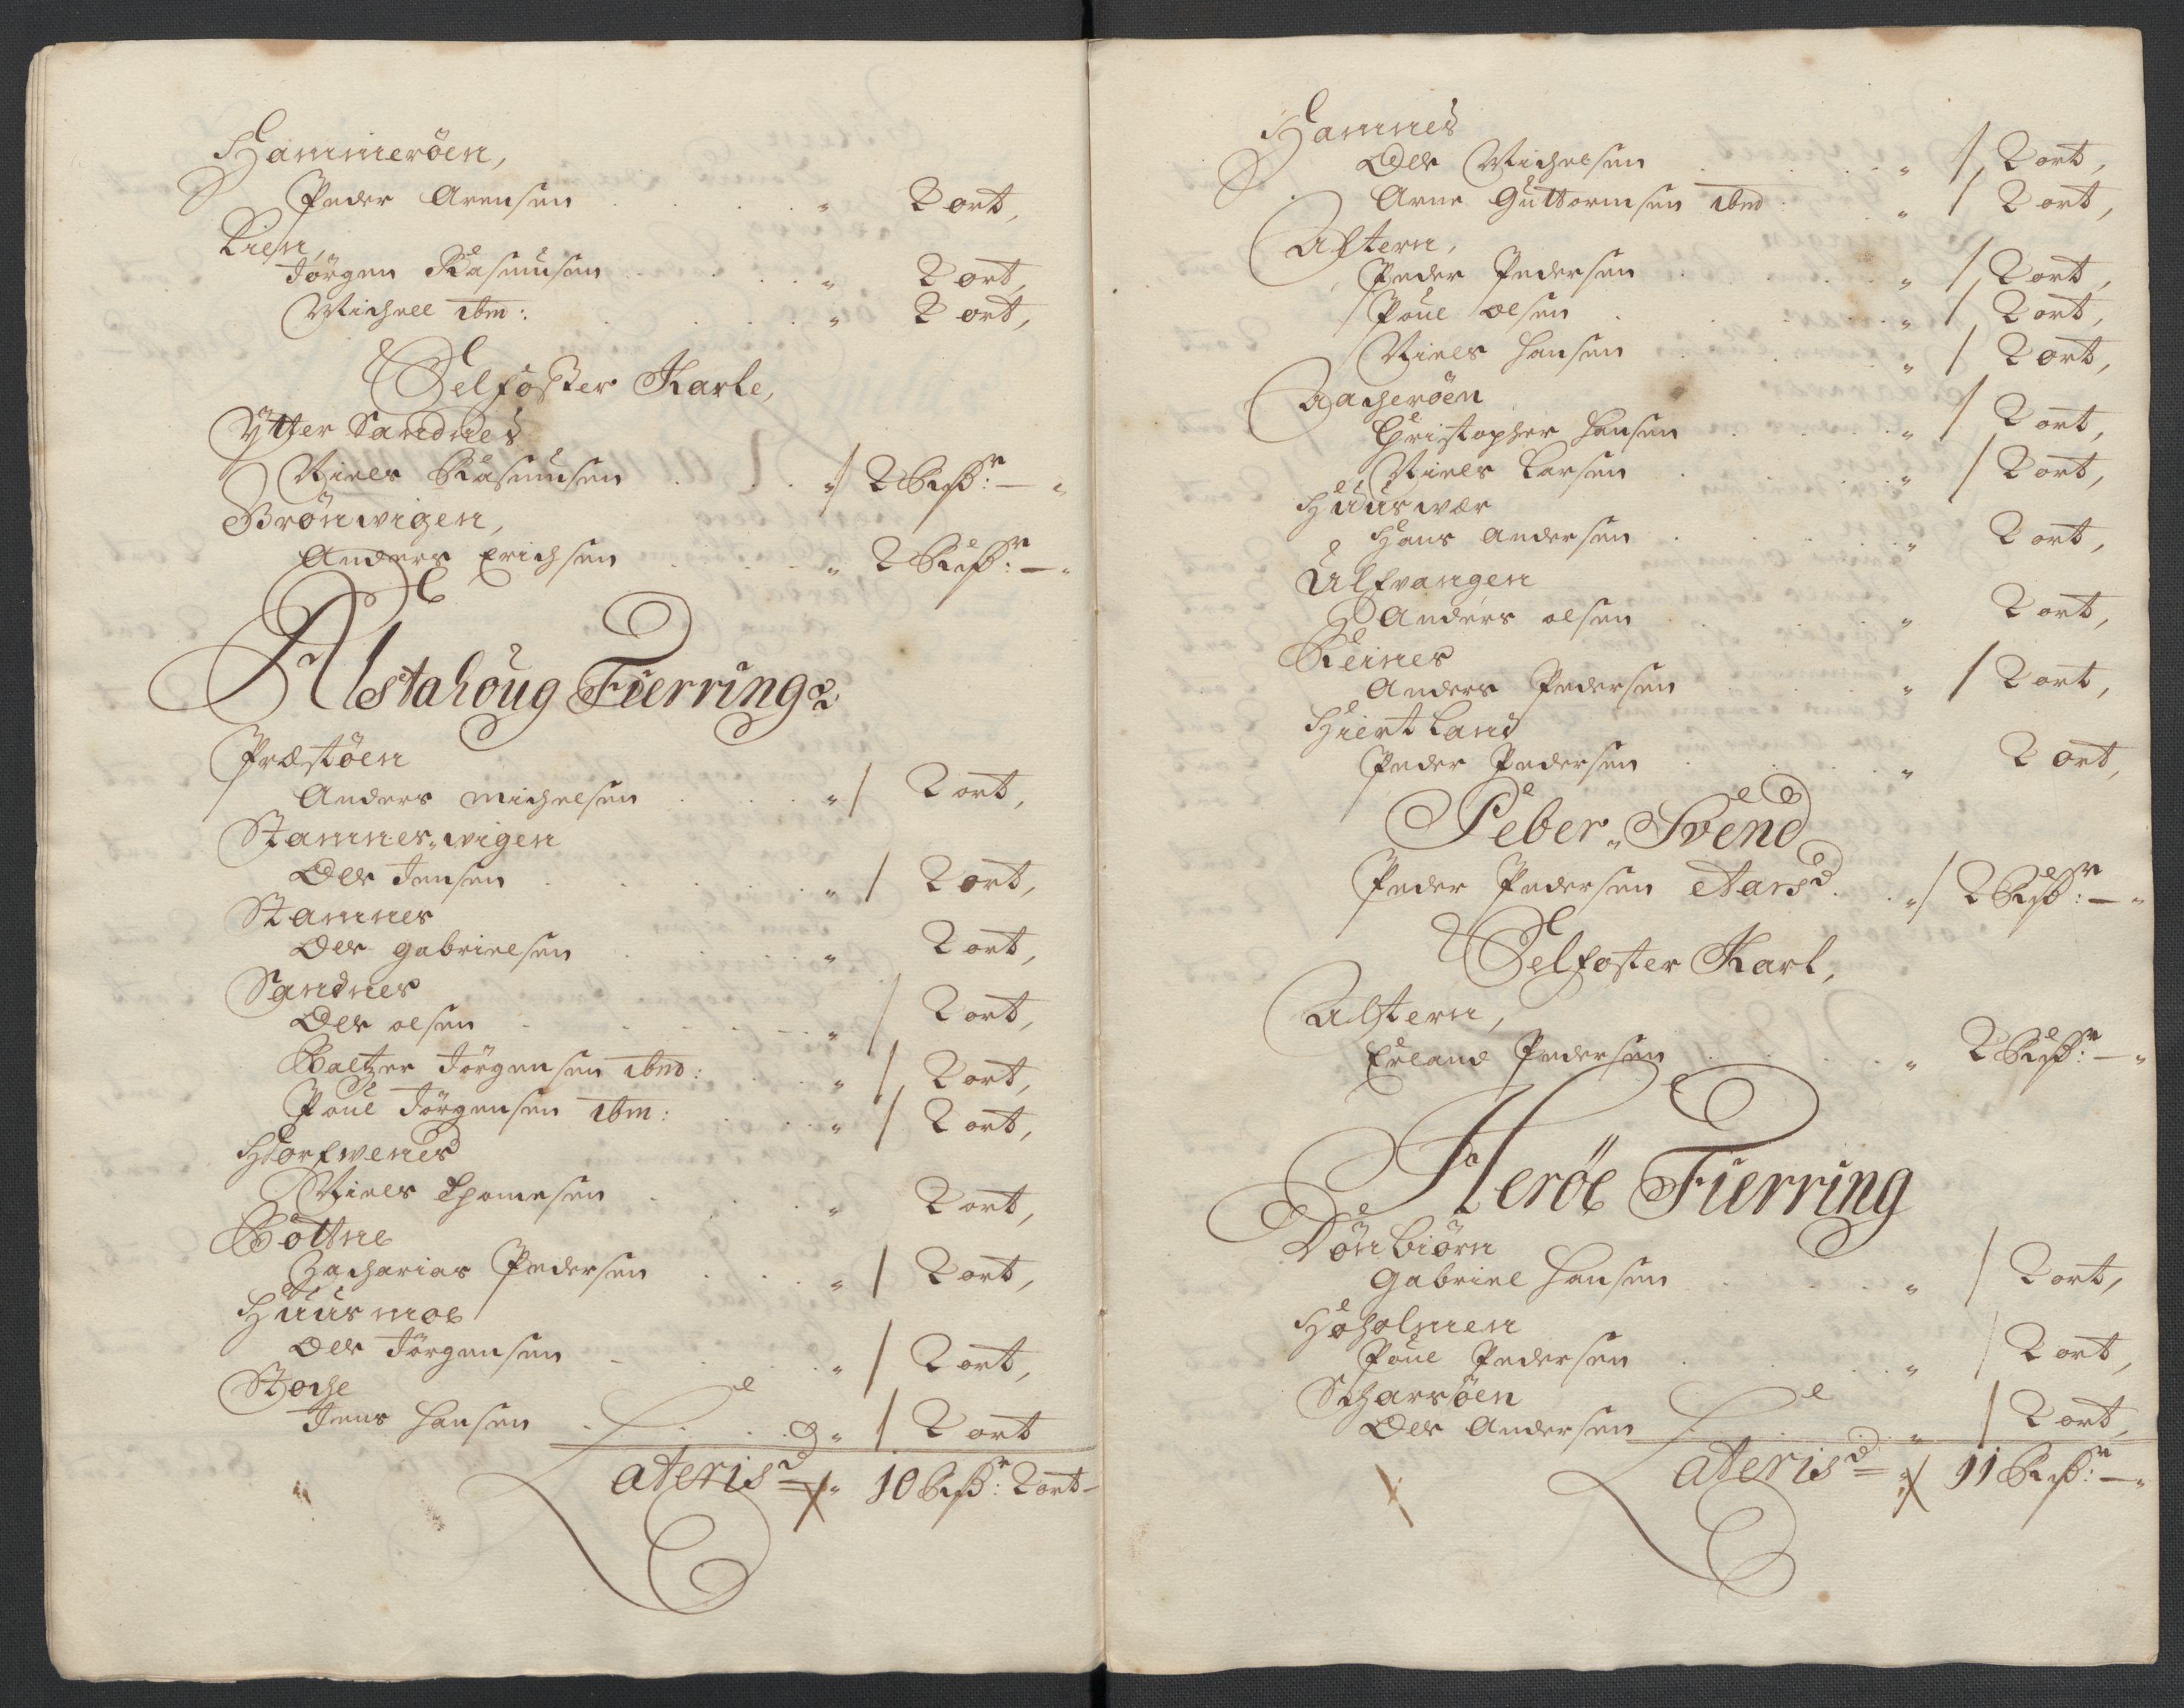 Hammerøen,
Peder Arensen . . . . „ 2 ort,
Lien,
Jørgen Rasmusen . . . „ 2 ort,
Michell ibm: . . . . „ 2 ort,
Selfoster Karle,
Ytter Sandnes
Niels Rasmusen . . . „ / 2 Rdr: — „
Brønwigen,
Anders Erichsen . . . „ 2 Rdr: — „
Alstahoug Fierring
Præstøen
Anders Michelsen . . . „ / 2 ort,
Stamnes„wigen
Ole Jensen . . . . „ / 2 ort,
Stamnes
Ole Gabrielsen . . . „ 2 ort,
Sandnes
Ole Olsen . . . . „ / 2 ort,
Baltzer Jørgensen ibmd: . . „ / 2 ort,
Poul Jørgensen ibm: . . . „ / 2 ort,
Horfwenes
Niels Thomesen . . . „ 2 ort,
Bottne
Zacharias Pedersen . . . „ / 2 ort,
Huusmoe
Ole Jørgensen . . . . „ / 2 ort,
Stoche
Jens Hansen . . . . „ / 2 ort
Lateris „ 10 Rdr: 2 ort –
Hamnes
Ole Michelsen . . . . „ / 2 ort,
Arne Guttormsen ibmd: . . „ / 2 ort,
Alstern,
Peder Pedersen . . . . „ / 2 ort,
Poul Olsen . . . . „ / 2 ort,
Niels Hansen . . . . „ / 2 ort,
Aacherøen
Christopher Hansen . . . „ / 2 ort,
Niels Larsen . . . . „ / 2 ort,
Huuswær
Hans Andersen . . . . „ 2 ort,
Ulfvangen
Anders Olsen . . . . „ 2 ort,
Reines
Anders Pedersen . . . „ / 2 ort,
Hiertland
Peder Pedersen . . . . „ 2 ort,
Peber„Svend
Peder Pedersen Aars . . „ / 2 Rdr: — „
Selfoster Karl,
Alstern,
Erland Pedersen . . . . „ 2 Rdr: — „
Herøe Fierring
Dønbiørn
Gabriel Hansen . . . . „ / 2 ort,
Høholmen
Poul Pedersen . . . . „ / 2 ort,
Scharsøen
Ole Andersen . . . . „ / 2 ort,
Lateris „ 11 Rdr: — „